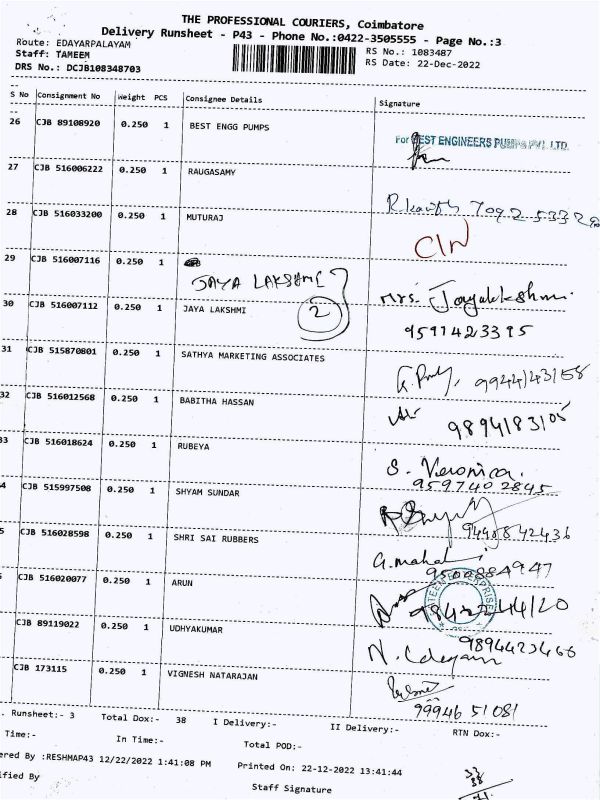 THE PROFESSIONAL COURIERS, Coimbatore
Delivery Runsheet - P43 - Phone No.:0422-3505555 - Page No.:3
Route: EDAYARPALAYAM
RS No.: 1083487
Staff: TAMEEM
RS Date: 22-Dec-2022
DRS No.: DCJB108348703
S No Consignment No Weight PCS Consignee Details Signature
26 CJB 89108920 0.250 1 BEST ENGG PUMPS
For BEST ENGINEERS PUMPS PVT. LTD.
27 CJB 516006222 0.250 1 RAUGASAMY
28 CJB 516033200 0.250 1 MUTURAJ
29 CJB 516007116 0.250 1 JAYA LAKSHMI
Mrs. Jayalakshmi.
30 CJB 516007112 0.250 1 JAYA LAKSHMI 2
9591423395
31 CJB 515870801 0.250 1 SATHYA MARKETING ASSOCIATES
9944143158
32 CJB 516012568 0.250 1 BABITHA HASSAN
9894183105
33 CJB 516018624 0.250 1 RUBEYA S. Veronica.
9597402845
4 CJB 515997508 0.250 1 SHYAM SUNDAR
9440842436
5 CJB 516028598 0.250 1 SHRI SAI RUBBERS G.mahal
CJB 516020077 0.250 1 ARUN
9842244120
CJB 89119022 0.250 1 UDHYAKUMAR
9894423466
CJB 173115 0.250 1 VIGNESH NATARAJAN
9994651081
. Runsheet:- 3 Total Dox:- 38 I Delivery:- II Delivery:- RTN Dox:-
Time:- In Time:- Total POD:-
ered By :RESHMAP43 12/22/2022 1:41:08 PM Printed On: 22-12-2022 13:41:44
ified By Staff Signature